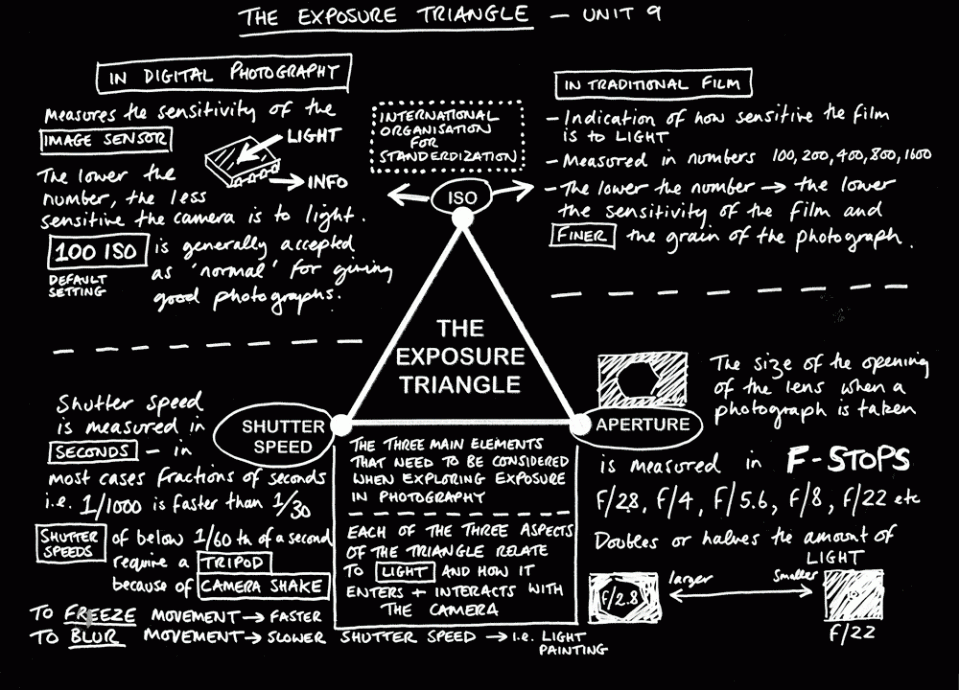 THE EXPOSURE TRIANGLE — UNIT 9
IN DIGITAL PHOTOGRAPHY
Measures the sensitivity of the
IMAGE SENSOR
LIGHT
INFO
The lower the
number, the less
sensitive the camera is to light.
100 ISO is generally accepted
DEFAULT SETTING
as 'normal' for giving
good photographs.
INTERNATIONAL
ORGANISATION
FOR
STANDERDIZATION
ISO
IN TRADITIONAL FILM
- Indication of how sensitive the film
is to LIGHT
- Measured in numbers 100, 200, 400, 800, 1600
- The lower the number → the lower
the sensitivity of the film and
FINER the grain of the photograph.
THE
EXPOSURE
TRIANGLE
Shutter speed
is measured in
SECONDS — in
most cases fractions of seconds
i.e. 1/1000 is faster than 1/30
SHUTTER
SPEED
SHUTTER SPEEDS of below 1/60 th of a second
require a TRIPOD
because of CAMERA SHAKE
TO FREEZE MOVEMENT → FASTER
TO BLUR MOVEMENT → SLOWER SHUTTER SPEED → i.e. LIGHT
PAINTING
THE THREE MAIN ELEMENTS
THAT NEED TO BE CONSIDERED
WHEN EXPLORING EXPOSURE
IN PHOTOGRAPHY
EACH OF THE THREE ASPECTS
OF THE TRIANGLE RELATE
TO LIGHT AND HOW IT
ENTERS + INTERACTS WITH
THE CAMERA
APERTURE
The size of the opening
of the lens when a
photograph is taken
is measured in F-STOPS
f/2.8, f/4, f/5.6, f/8, f/22 etc
Doubles or halves the amount of
LIGHT
f/2.8
larger
smaller
f/22